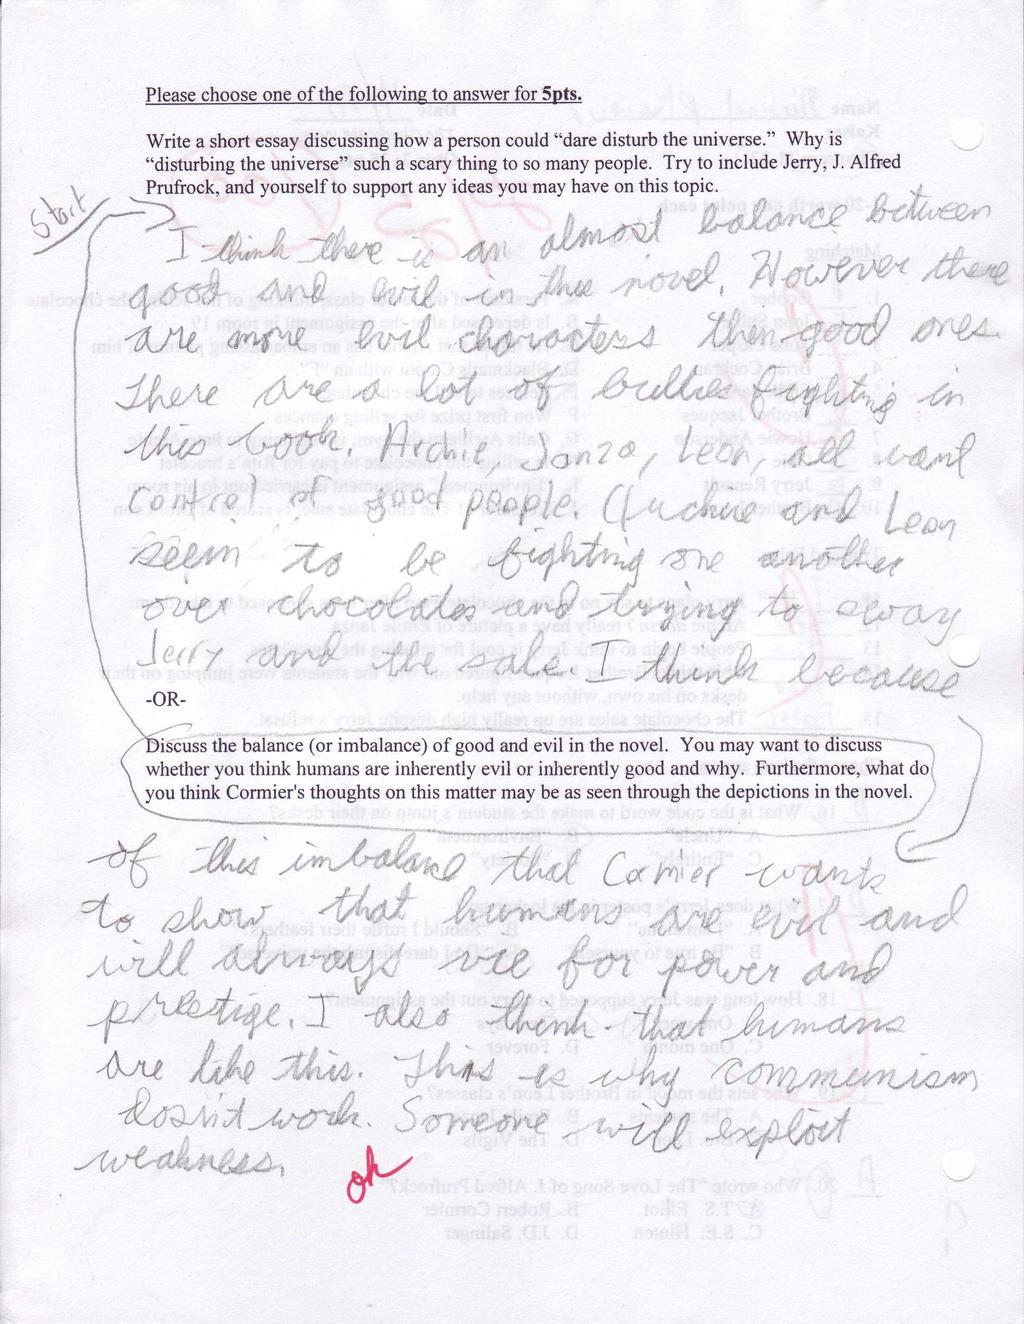 Please choose one of the following to answer for 5pts.
Write a short essay discussing how a person could “dare disturb the universe.” Why is
“disturbing the universe” such a scary thing to so many people. Try to include Jerry, J. Alfred
Prufrock, and yourself to support any ideas you may have on this topic.
Start
I think there is an almost balance between
good and evil in this novel. However there
are more evil characters then good ones.
There are a lot of bullies fighting in
this book. Archie Janza, Leon, all want
Controel of good people. Archie and Leon
seem to be fighting one another
over chocolates and trying to sway
Jerry and the sale. I think because
-OR-
Discuss the balance (or imbalance) of good and evil in the novel. You may want to discuss
whether you think humans are inherently evil or inherently good and why. Furthermore, what do
you think Cormier's thoughts on this matter may be as seen through the depictions in the novel.
of this imbaland that Cormier wants
to show that humans are evil and
will always vie for power and
prestige. I also think that humans
are like this. This is why communism
dosn't work. Someone will exploit
weakness.
ok